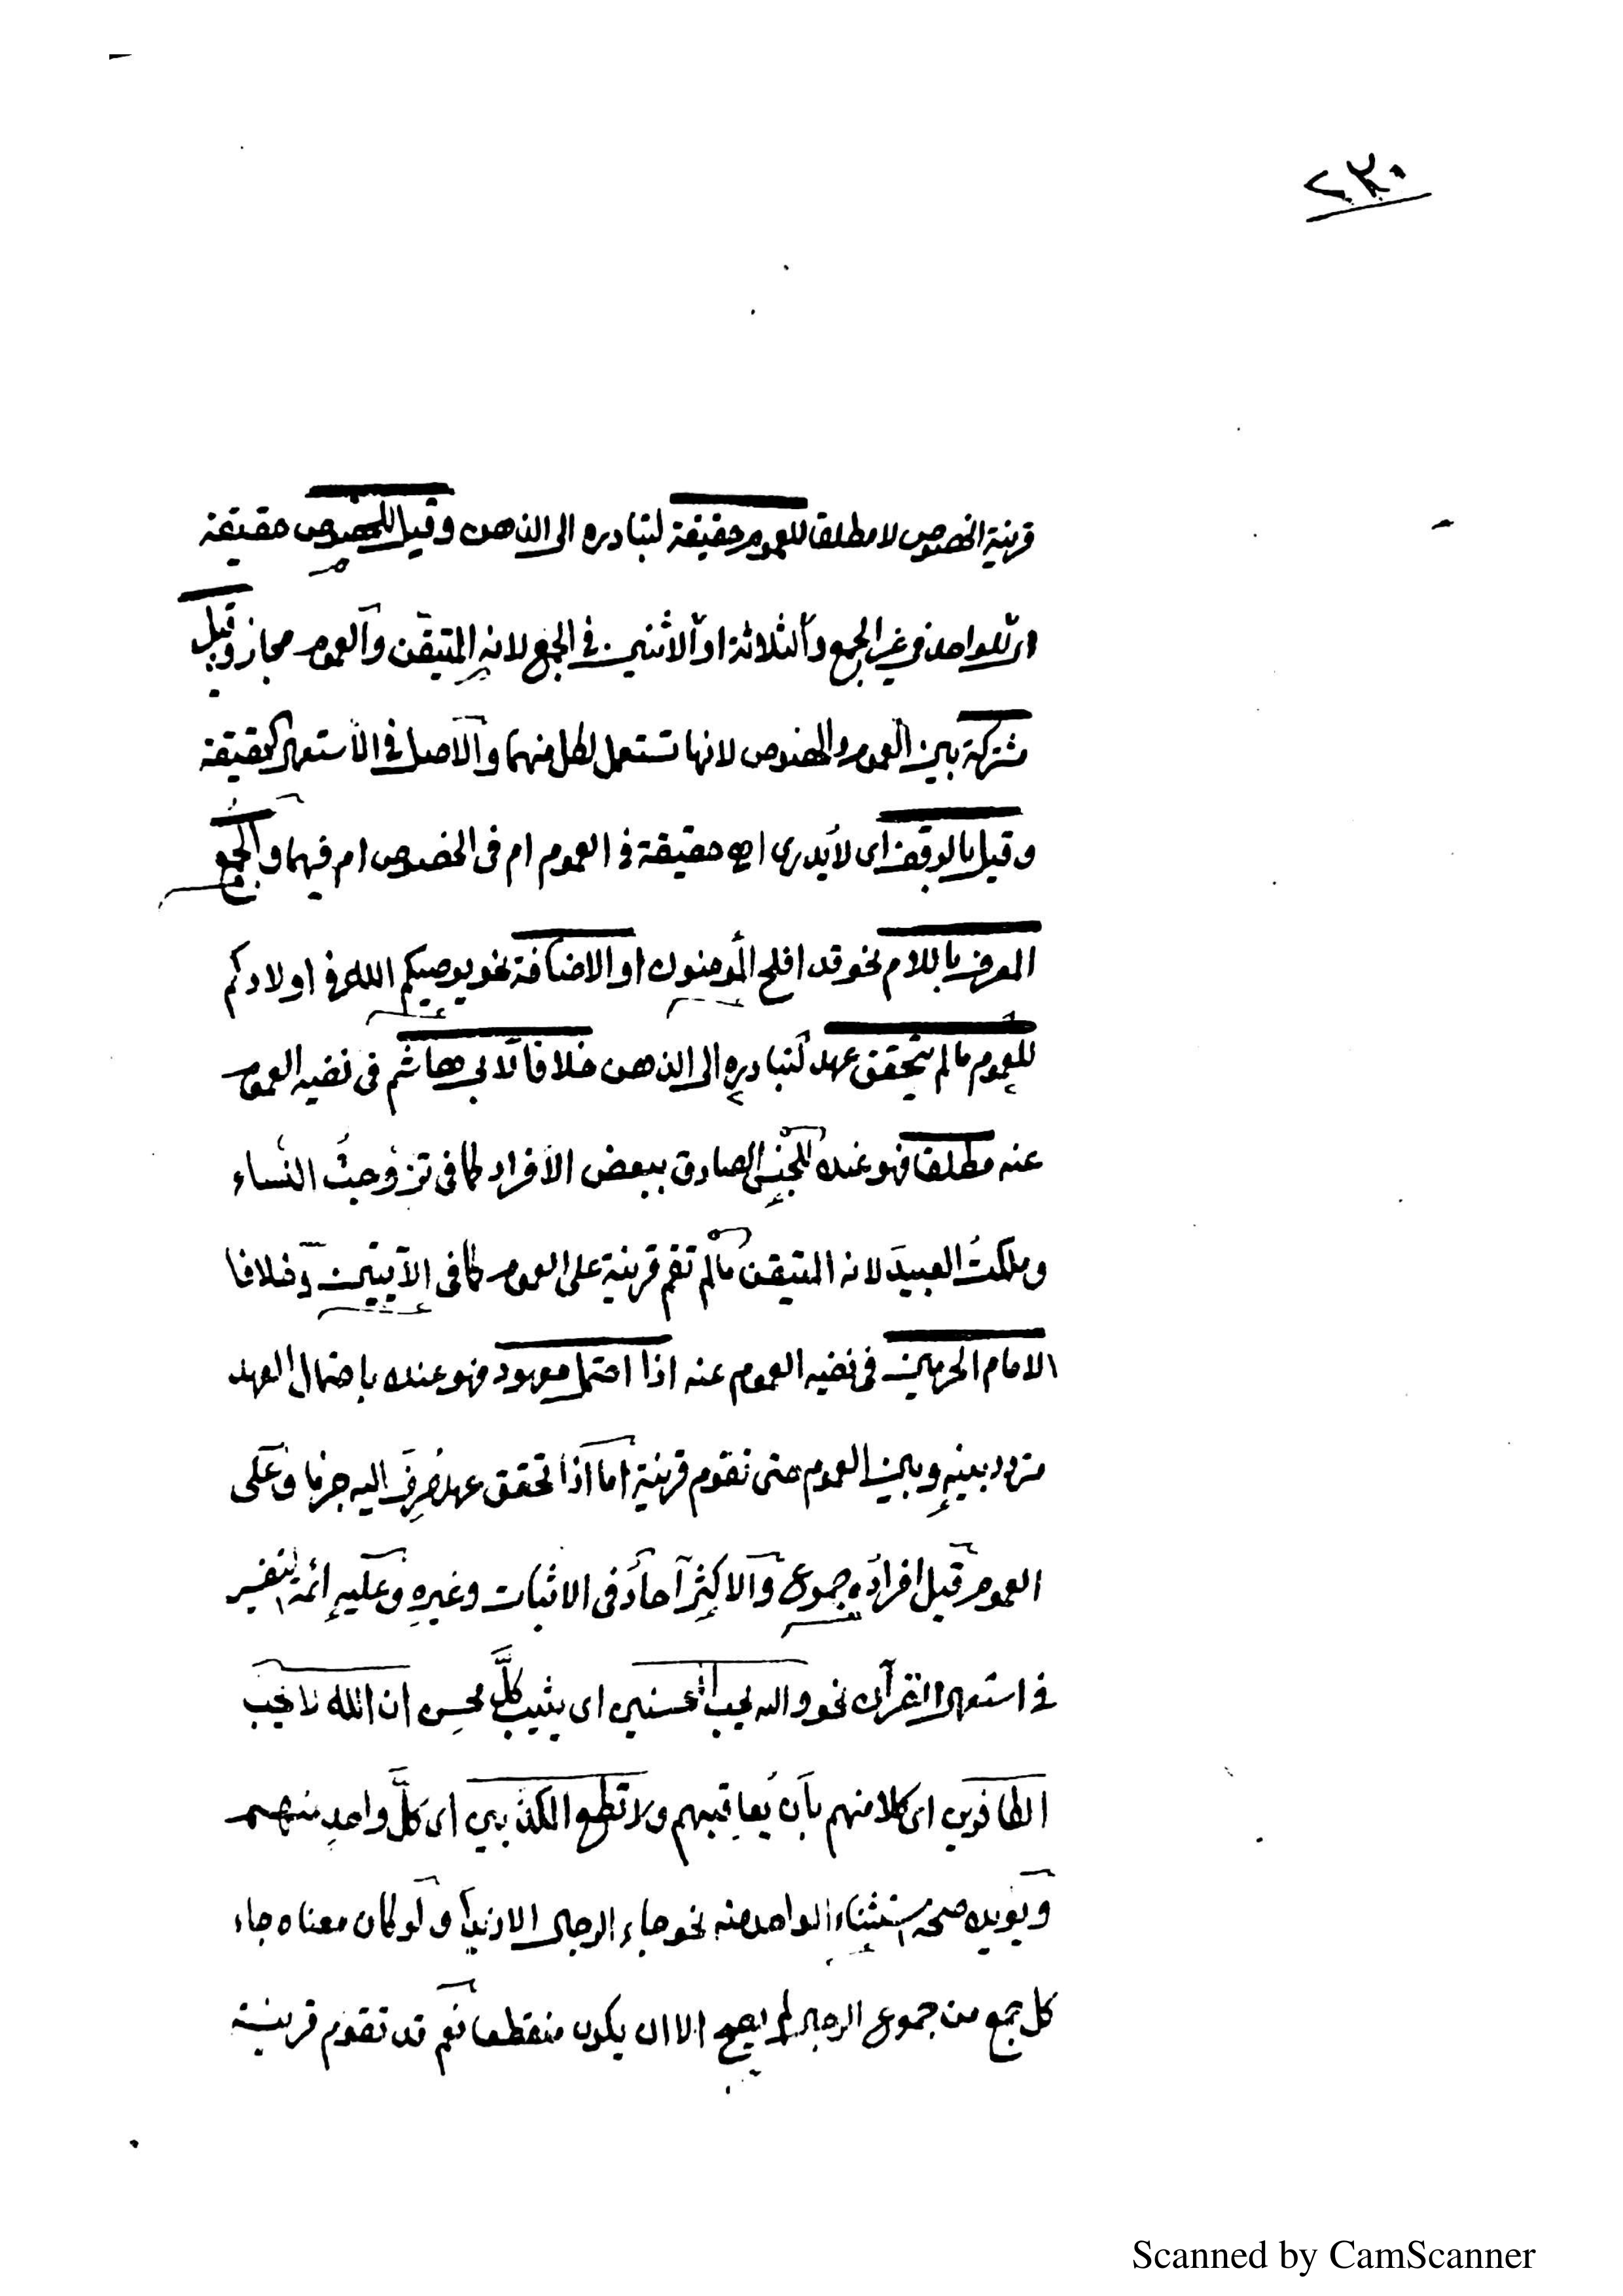 ٢٣٠
قرينة الخصوص لا مطلقا للعموم حقيقة لتبادره الى الذهن وقيل للخصوص حقيقة
اى للواحد فى غير الجمع والثلاثة او الاثنين فى الجمع لانه المتيقن والعموم مجاز وقيل
مشتركة بين العموم والخصوص لانها تستعمل لكل منهما والاصل فى الاستعمال الحقيقة
وقيل بالوقف اى لا يدرى اهى حقيقة فى العموم ام فى الخصوص ام فيهما والجمع
المعرف باللام نحو قد افلح المؤمنون او الاضافة نحو يوصيكم الله فى اولادكم
للعموم ما لم يتحقق عهد لتبادره الى الذهن خلافا لابى هاشم فى نفيه العموم
عنه مطلقا فهو عنده للجنس الصادق ببعض الافراد كما فى تزوجتُ النساء
وملكتُ العبيدَ لانه المتيقن ما لم تقم قرينة على العموم كما فى الآيتين وخلافا
لامام الحرمين فى نفيه العموم عنه اذا احتمل معهود فهو عنده باحتمال العهد
متردد بينه وبين العموم حتى تقوم قرينة اما اذا تحقق عهد صُرِفَ اليه جزما وعلى
العموم قيل افرادُه جموع والاكثر آحادٌ فى الاثبات وغيره وعليه ائمة التفسير
فى استعمال القرآن نحو والله يحب المحسنين اى يثيب كلَّ محسِن ان الله لا يحب
الكافرين اى كلا منهم بأن يُعاقِبهم ولا تطع المكذبين اى كلَّ واحدٍ منهم
ويؤيده صحة استثناء الواحد منه نحو جاء الرجال الا زيدا ولو كان معناه جاء
كل جمع من جموع الرجال لم يصح الا ان يكون منقطعا نعم قد تقوم قرينة
Scanned by CamScanner